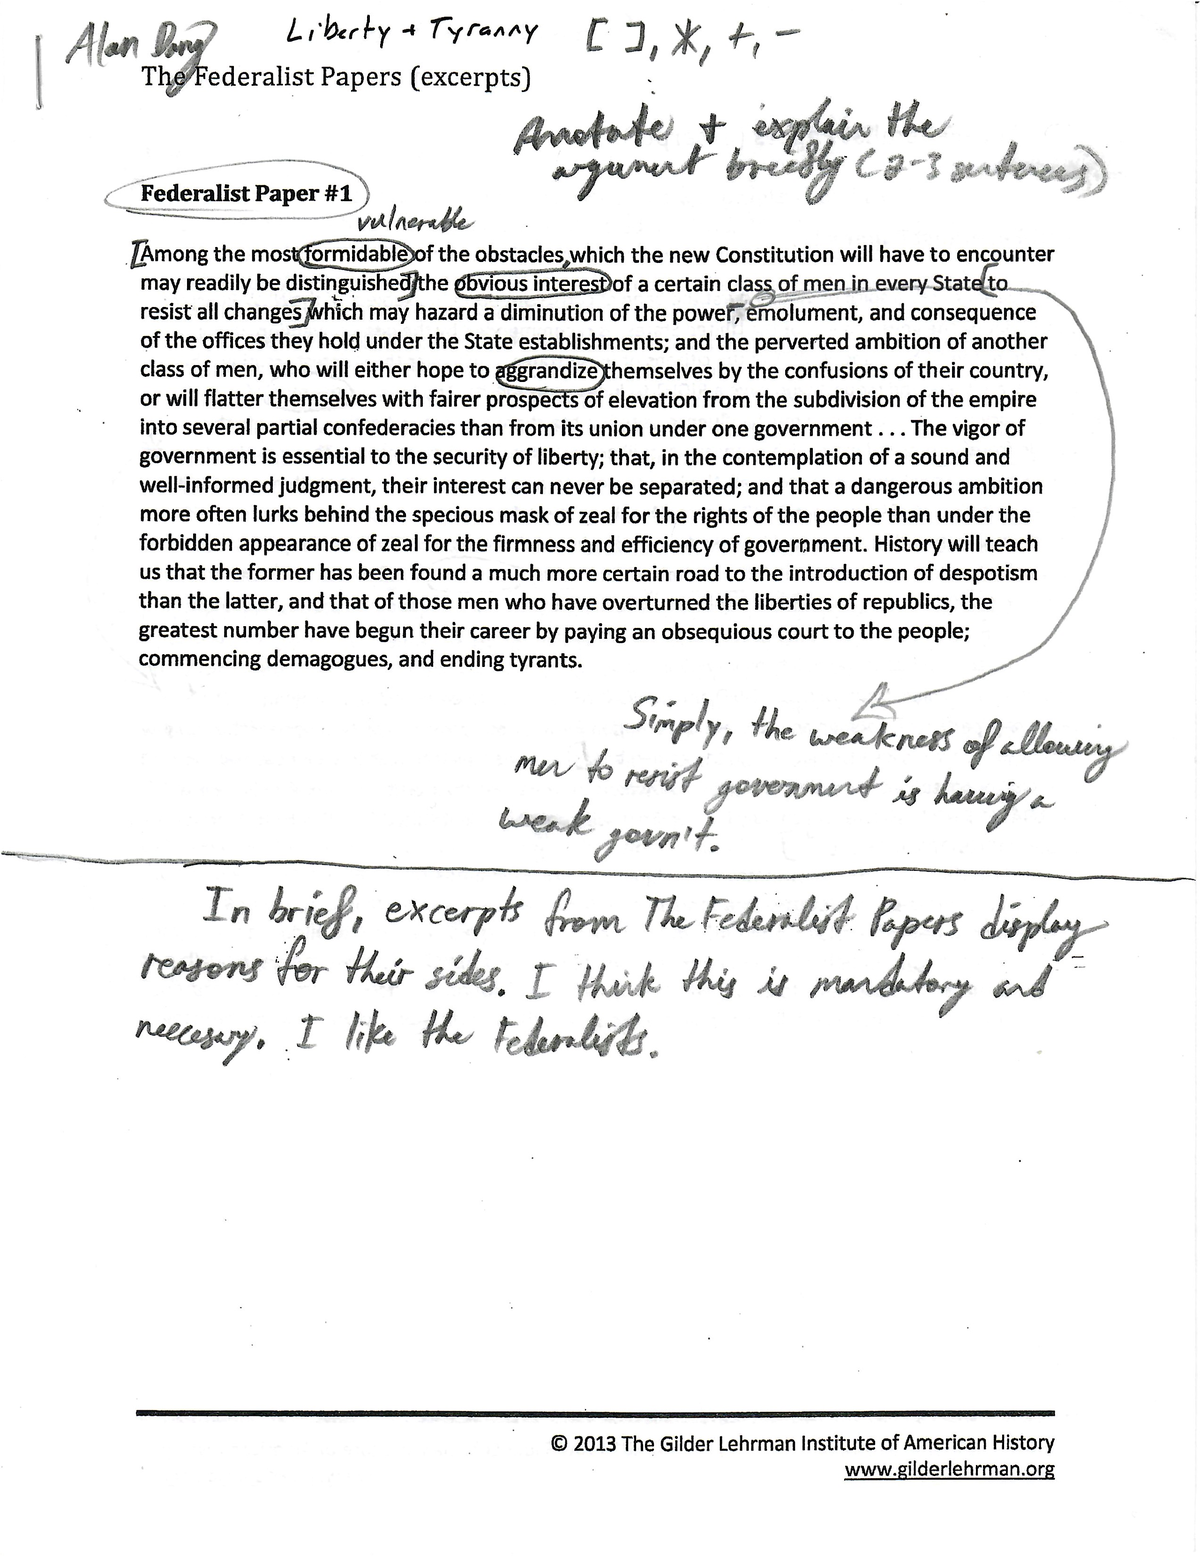 Alan Dong Liberty + Tyranny [ ], *, +, -
The Federalist Papers (excerpts)
Annotate + explain the
argument briefly (2-3 sentences)
Federalist Paper #1
vulnerable
[Among the most formidable of the obstacles, which the new Constitution will have to encounter
may readily be distinguished] the obvious interest of a certain class of men in every State [to
resist all changes] which may hazard a diminution of the power, emolument, and consequence
of the offices they hold under the State establishments; and the perverted ambition of another
class of men, who will either hope to aggrandize themselves by the confusions of their country,
or will flatter themselves with fairer prospects of elevation from the subdivision of the empire
into several partial confederacies than from its union under one government . . . The vigor of
government is essential to the security of liberty; that, in the contemplation of a sound and
well-informed judgment, their interest can never be separated; and that a dangerous ambition
more often lurks behind the specious mask of zeal for the rights of the people than under the
forbidden appearance of zeal for the firmness and efficiency of government. History will teach
us that the former has been found a much more certain road to the introduction of despotism
than the latter, and that of those men who have overturned the liberties of republics, the
greatest number have begun their career by paying an obsequious court to the people;
commencing demagogues, and ending tyrants.
Simply, the weakness of allowing
men to resist government is having a
weak govn't.
In brief, excerpts from The Federalist Papers display
reasons for their sides. I think this is mandatory and
neccesary. I like the Federalists.
© 2013 The Gilder Lehrman Institute of American History
www.gilderlehrman.org